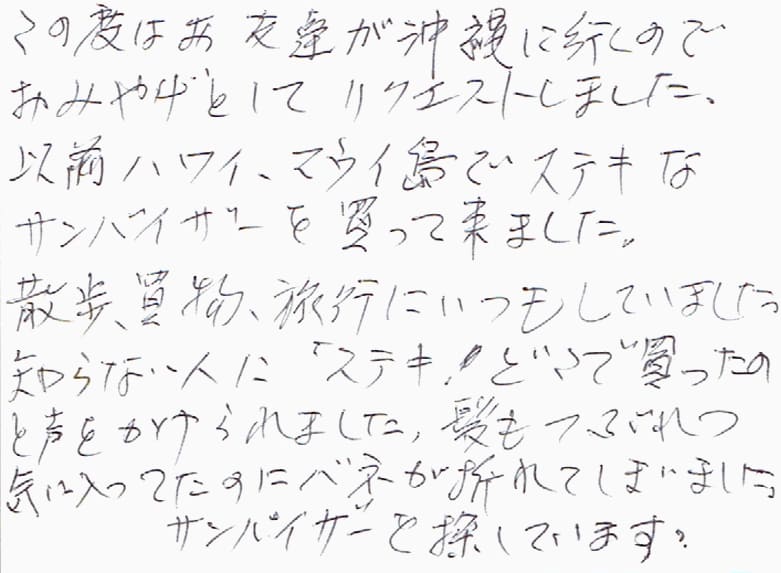 この度はお友達が沖縄に行くので
おみやげとしてリクエストしました、
以前ハワイ、マウイ島でステキな
サンバイザーを買って来ました。
散歩、買物、旅行にいつもしていました
知らない人に「ステキ!どこで買ったの
と声をかけられました、髪もつぶれつ
気に入ってたのにバネが折れてしまいました
サンバイザーを探しています。